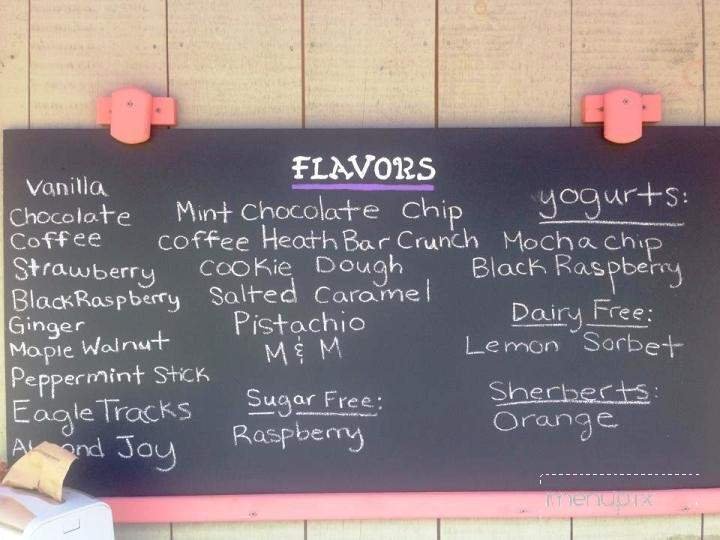 FLAVORS
Vanilla
Chocolate
Coffee
Strawberry
Black Raspberry
Ginger
Maple Walnut
Peppermint Stick
Eagle Tracks
Joy
Mint Chocolate Chip
coffee Heath Bar Crunch
COOKie Dough
Salted Caramel
Pistachio
M & M
Sugar Free:
Raspberry
yogurts:
Mocha chip
Black Raspberry
Dairy Free:
Lemon Sorbet
Sherberts:
Orange
menupix